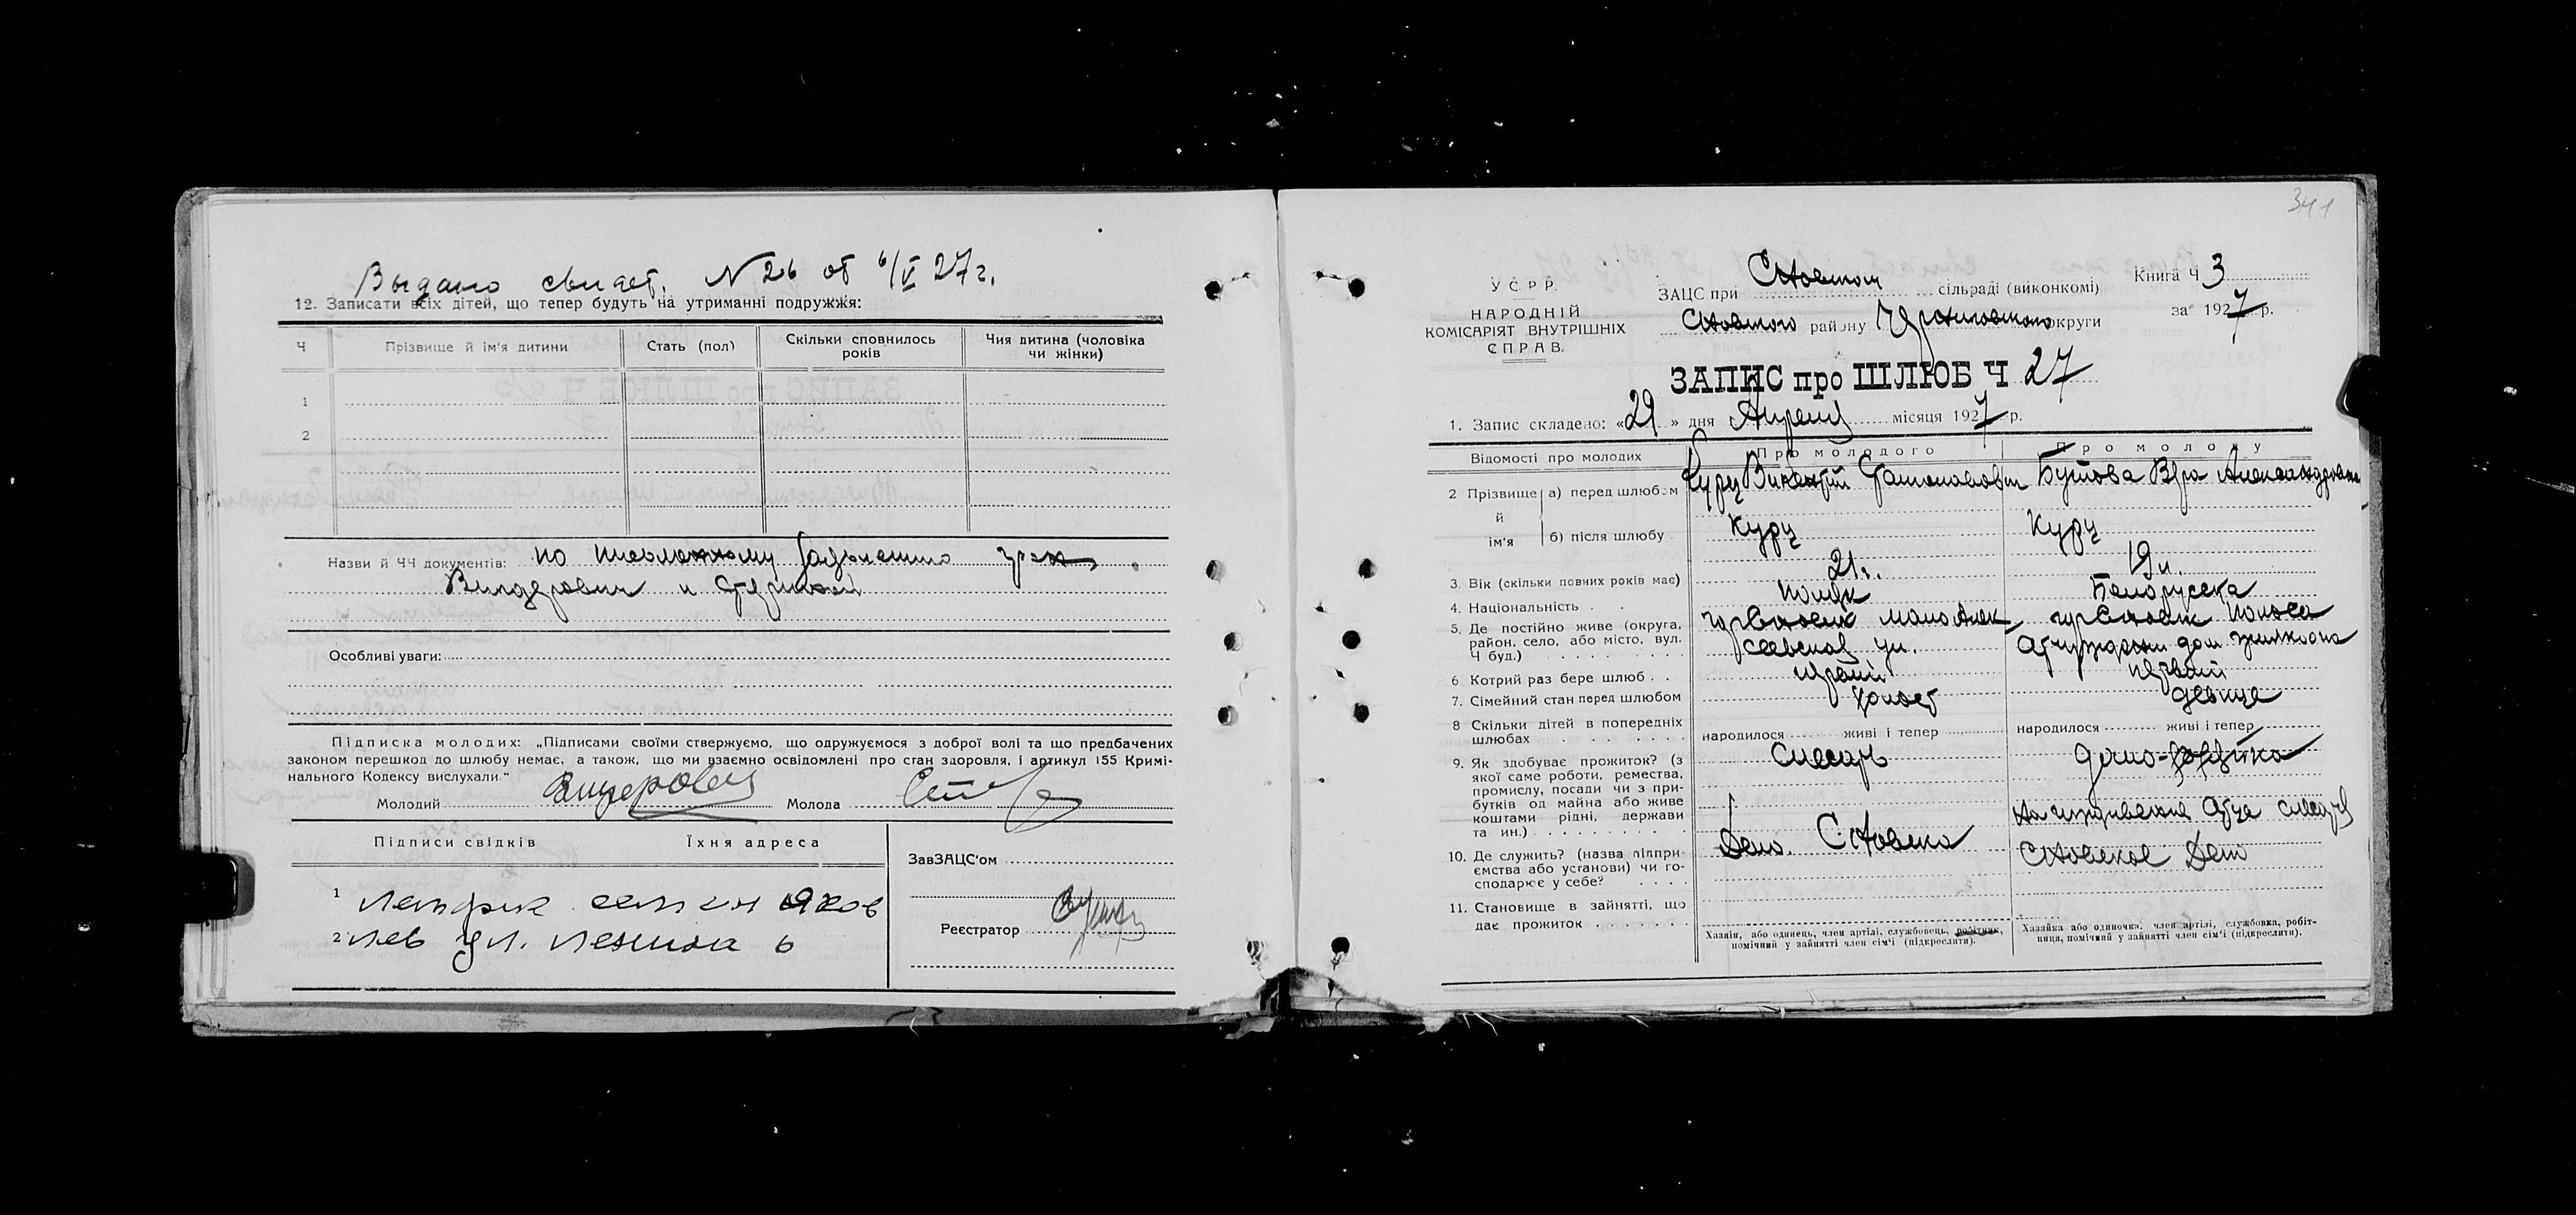 Выдано свидет. N 26 от 6/V 27 г.
12. Записати всіх дітей, що тепер будуть на утриманні подружжя:
Ч
Прізвище й ім'я дитини
Стать (пол)
Скільки сповнилось років
Чия дитина (чоловіка чи жінки)
1
2
Назви й ЧЧ документів: по
и
Особливі уваги:
Підписка молодих: „Підписами своїми ствержуємо, що одружуємося з доброї волі та що предбачених
законом перешкод до шлюбу немає, а також, що ми взаємно освідомлені про стан здоровля, і артикул 155 Кримі-
нального Кодексу вислухали."
Молодий Молода
Підписи свідків Їхня адреса
1
2 ул. Ленина 6
ЗавЗАЦС'ом
Реєстратор
341
У С Р Р.
НАРОДНІЙ
КОМІСАРІЯТ ВНУТРІШНІХ
СПРАВ.
ЗАЦС при Сновском сільраді (виконкомі)
Сновского району Черниговского округи
Книга Ч 3
за 1927 р.
ЗАПИС про ШЛЮБ Ч 27
1. Запис складено: «29» дня Апреля місяця 1927 р.
Відомості про молодих
Про молодого
Про молоду
2 Прізвище й ім'я
а) перед шлюбом
Курц Викентий
Бутова Вера Александровна
б) після шлюбу
Курц
Курц
3. Вік (скільки повних років має)
21 г.
19 л.
4. Національність
поляк
Белорусска
5. Де постійно живе (округа,
район, село, або місто, вул.
Ч буд.)
гор Сновск Мало Алек-
сеевская ул.
гор Сновск полоса
отчуждения дом
6 Котрий раз бере шлюб
первый
первый
7. Сімейний стан перед шлюбом
холост
девица
8 Скільки дітей в попередніх
шлюбах
народилося живі і тепер
народилося живі і тепер
9. Як здобуває прожиток? (з
якої саме роботи, ремества,
промислу, посади чи з при-
бутків од майна або живе
коштами рідні, держави
та ин.)
Слесарь
на иждивении отца слесаря
10. Де служить? (назва підпри-
ємства або установи) чи го-
сподарює у себе?
Депо. Сновска
Сновское Депо
11. Становище в зайнятті, що
дає прожиток
Хазяїн, або одинець, член артілі, службовець, робітник,
помічний у зайнятті член сім'ї (підкреслити).
Хазяйка або одиночка, член артілі, службовка, робіт-
ниця, помічний у зайнятті член сім'ї (підкреслити).